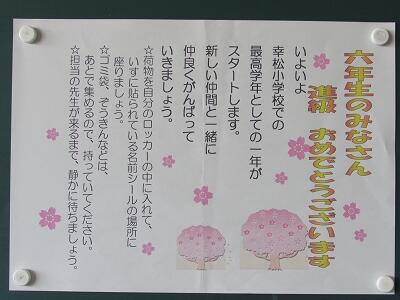 六年生のみなさん
進級 おめでとうございます
いよいよ
幸松小学校での
最高学年としての一年が
スタートします。
新しい仲間と一緒に
仲良くがんばって
いきましょう。
☆荷物を自分のロッカーの中に入れて、
いすに貼られている名前シールの場所に
座りましょう。
☆ゴミ袋、ぞうきんなどは、
あとで集めるので、持っていてください。
☆担当の先生が来るまで、静かに待ちましょう。